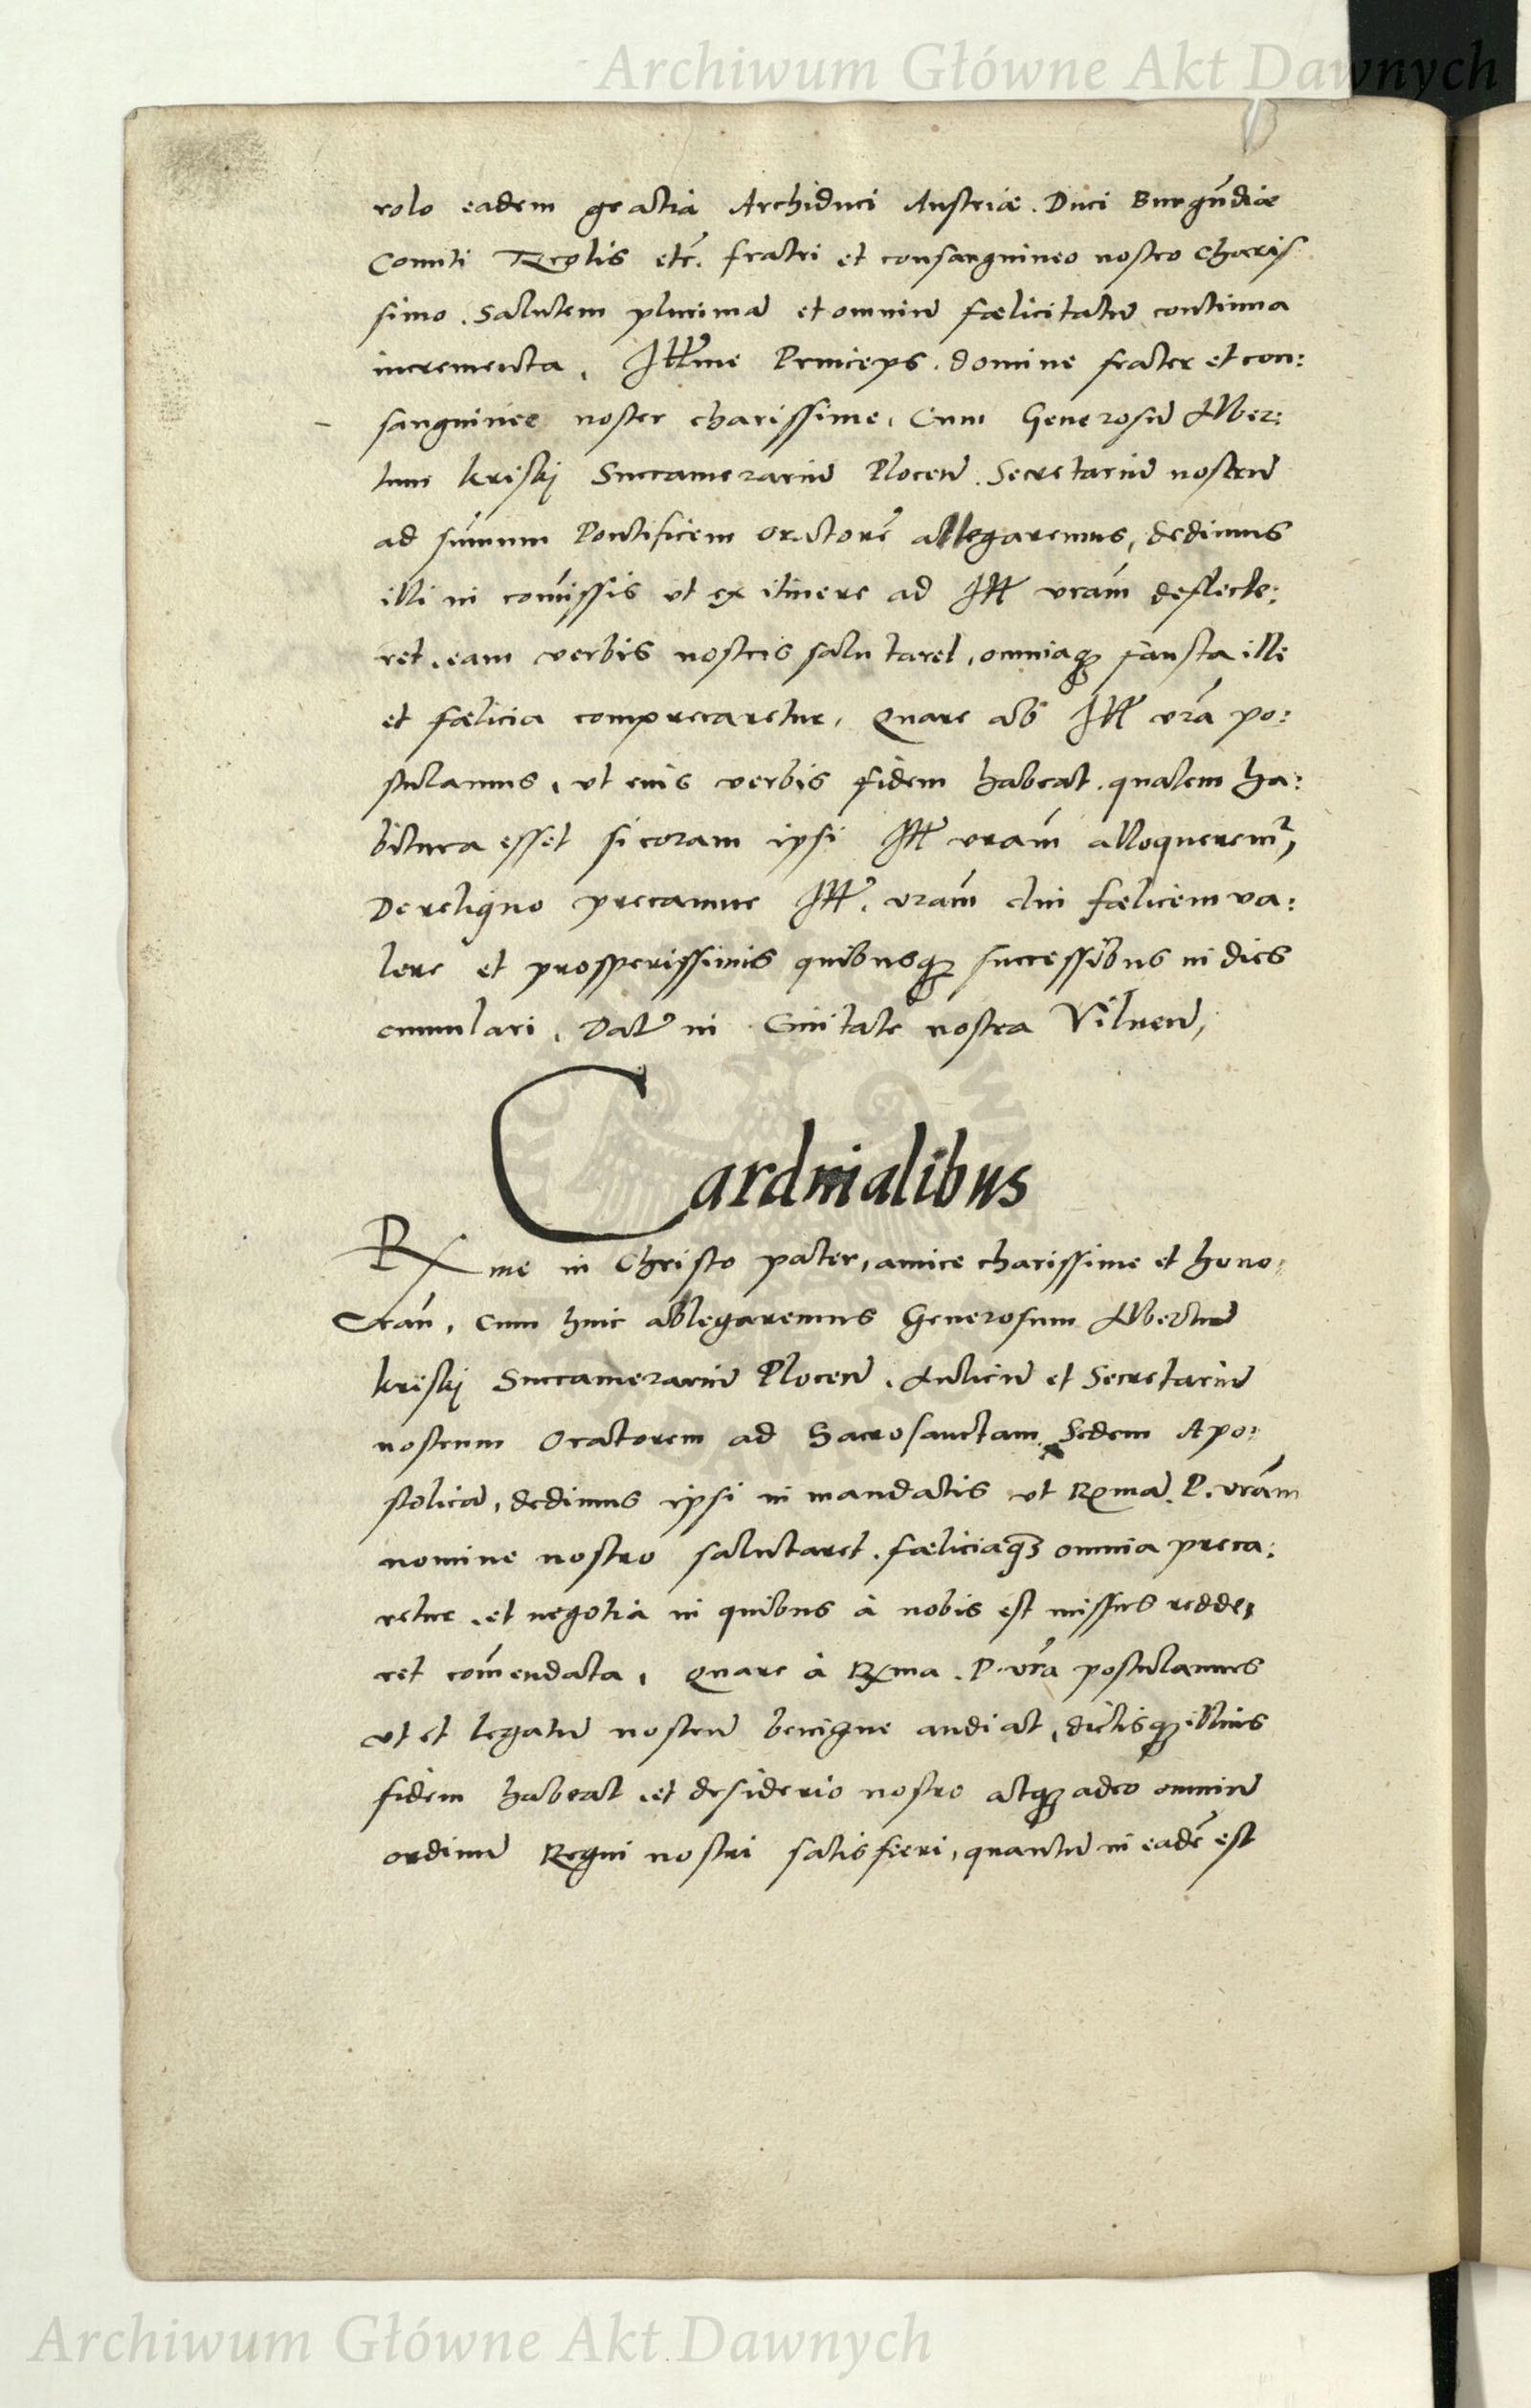 Archiwum Główne Akt Dawnych
rolo eadem gratia Archiduci Austriæ. Duci Burgūdiæ
Comiti Tẏrolis etc̄. fratri et consanguineo nostro charis
simo. Salutem plurimā et omniū fælicitatū continua
incrementa, Illme Princeps. domine frater et con:
sanguinee noster charissime, Cum Generosū Alber:
tum Kriskj Succamerariū Plocen̄. Secretariū nostrū
ad sūmum Pontificem oratorē ablegaremus, dedimus
illi in com̄issis ut ex itinere ad Ill vram̄ deflecte:
ret, eam verbis nostris salutaret, omniaq; fausta illi
et fælicia comprecaretur, Quare ab Ill vrā po:
stulamus, ut eius verbis fidem habeat. qualem ha:
bitura esset si coram ipsi Ill vram̄ alloqueremr,
De reliquo precamur Ill. vram̄ diu fælicem va:
lere et prosperissimis quibusq; successibus in dies
cumulari, Dat in Ciuitate nostra Vilnen̄,
Cardinalibus
Rme in Christo pater, amice charissime et hono:
ran̄, Cum huic ablegaremus Generosum Albertū
Kriskj Succamerariū Plocen̄. Aulicū et Secretariū
nostrum Oratorem ad Sacrosanctam Sedem Apo:
stolicā, dedimus ipsi in mandatis ut Rmā. P. vram̄
nomine nostro salutaret. fæliciaq; omnia preca:
retur, et negotia in quibus à nobis est missus redde,
ret com̄endata, Quare à Rma. P. vrā postulamus
ut et legatū nostrū benigne audiat, dictisq; illius
fidem habeat, et desiderio nostro atq; adeo omniū
ordinū Regni nostri satisfieri, quantū in eadē est
Archiwum Główne Akt Dawnych